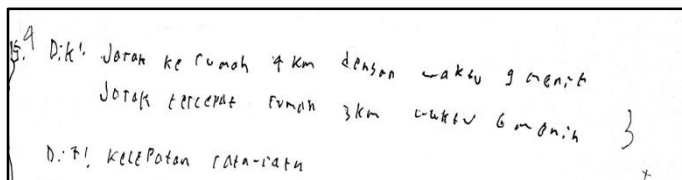 9 Dik! Jarak ke rumah 4 km dengan waktu 9 menit
Jarak tercepat rumah 3km waktu 6 menit }
Dit! Kecepatan rata-rata